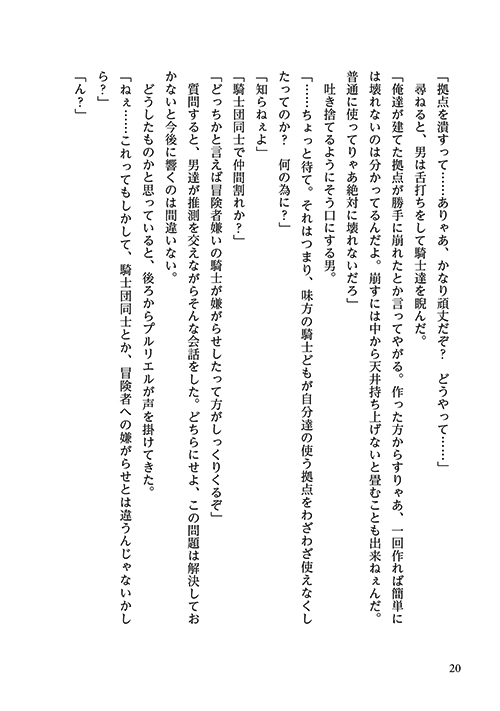 「拠点を潰すって……ありゃあ、かなり頑丈だぞ?　どうやって……」
尋ねると、男は舌打ちをして騎士達を睨んだ。
「俺達が建てた拠点が勝手に崩れたとか言ってやがる。作った方からすりゃあ、一回作れば簡単に
は壊れないのは分かってるんだよ。崩すには中から天井持ち上げないと畳むことも出来ねぇんだ。
普通に使ってりゃあ絶対に壊れないだろ」
吐き捨てるようにそう口にする男。
「……ちょっと待て。それはつまり、味方の騎士どもが自分達の使う拠点をわざわざ使えなくし
たってのか?　何の為に?」
「知らねぇよ」
「騎士団同士で仲間割れか?」
「どっちかと言えば冒険者嫌いの騎士が嫌がらせしたって方がしっくりくるぞ」
質問すると、男達が推測を交えながらそんな会話をした。どちらにせよ、この問題は解決してお
かないと今後に響くのは間違いない。
どうしたものかと思っていると、後ろからプルリエルが声を掛けてきた。
「ねぇ……これってもしかして、騎士団同士とか、冒険者への嫌がらせとは違うんじゃないかし
ら?」
「ん?」
20